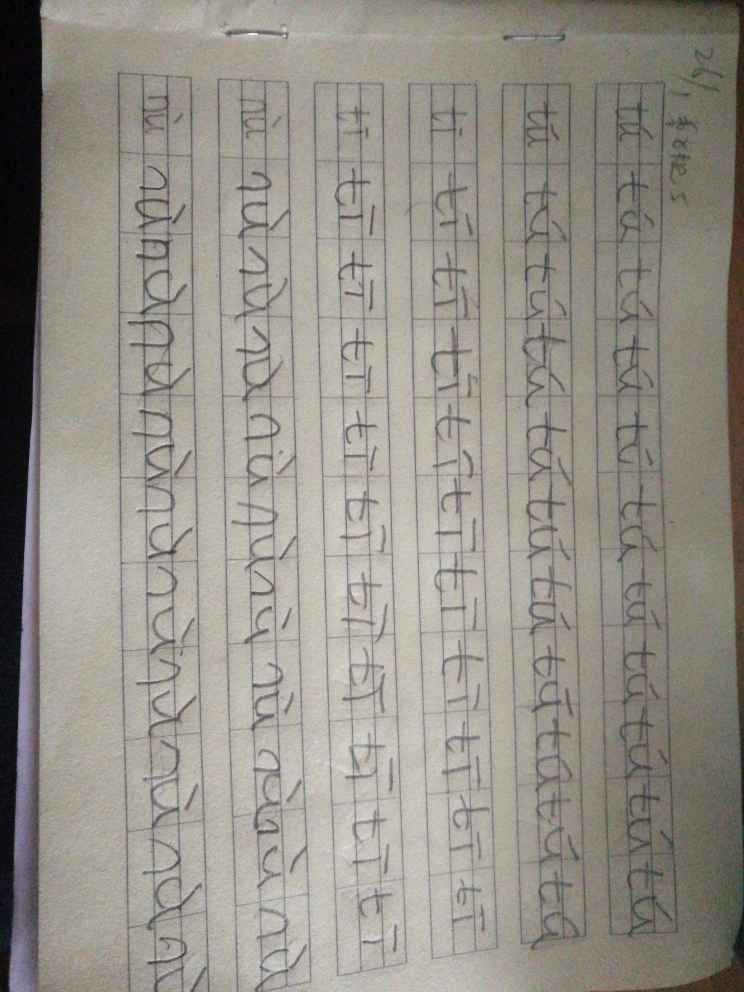 26/1
tú tú tú tú tú tú tú tú tú tú tú
tú tú tú tú tú tú tú tú tú tú tú
tī tī tī tī tī tī tī tī tī tī tī
tī tī tī tī tī tī tī tī tī tī tī
nù nù nù nù nù nù nù nù nù nù nù
nù nù nù nù nù nù nù nù nù nù nù